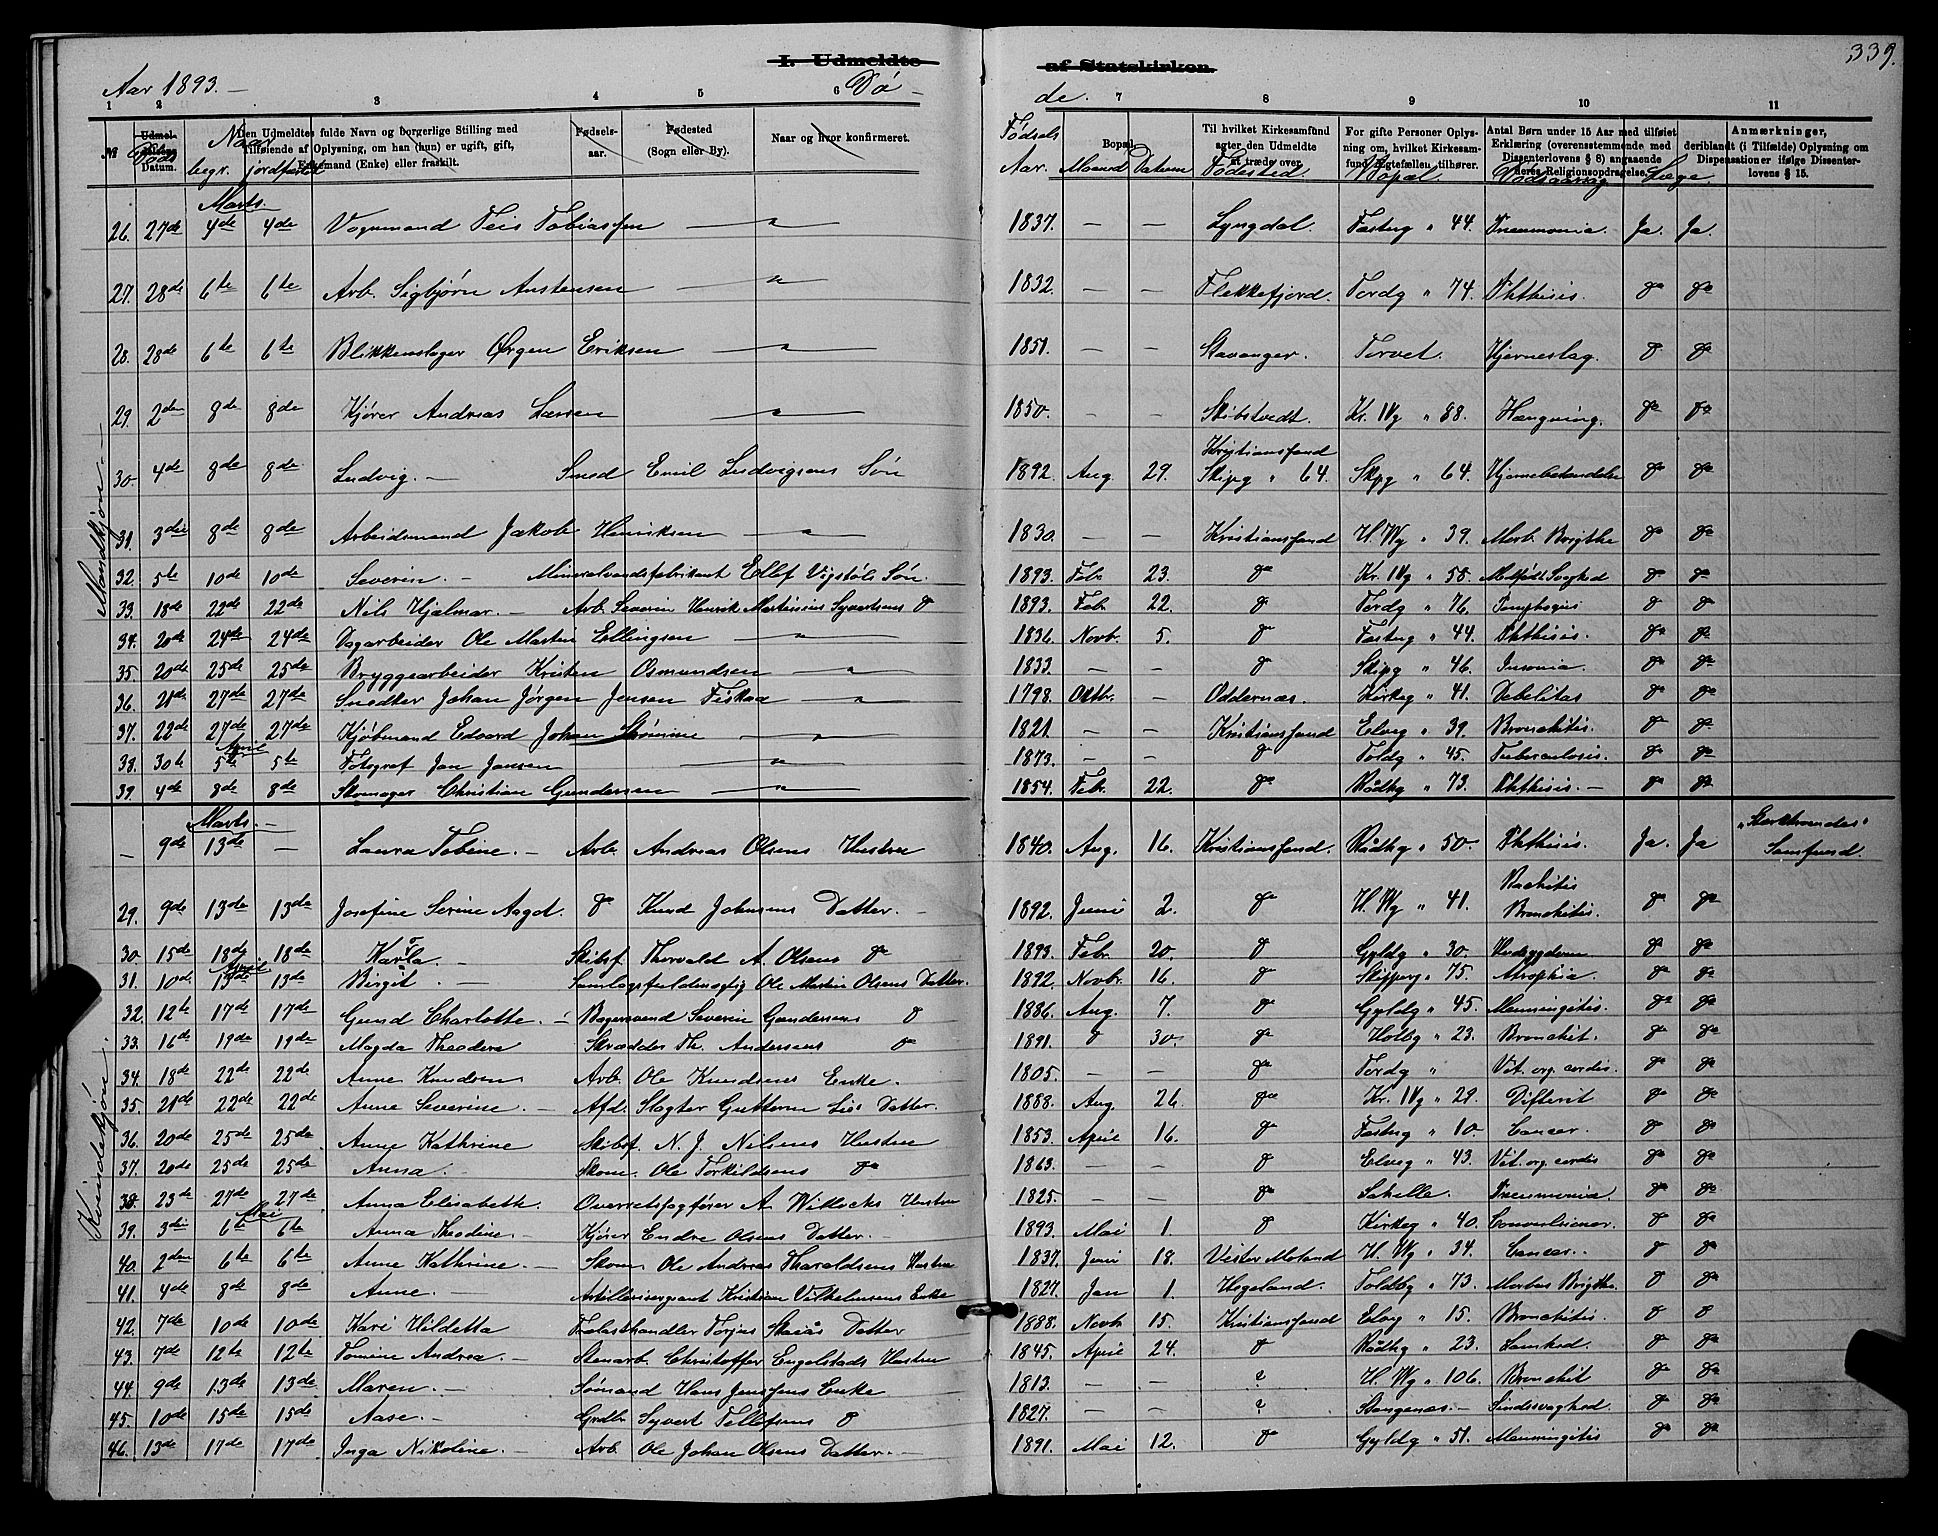 339.
I. Udmeldte af Statskirken.
Aar 1893. — Dø — de.
1 2 3 4 5 6 7 8 9 10 11
№ Udmeldelsens Datum. Døds
Naar begr. jordfæstet
Den Udmeldtes fulde Navn og borgerlige Stilling med Tilføiende af Oplysning, om han (hun) er ugift, gift, Enkemand (Enke) eller fraskilt.
Fødselsaar.
Fødested (Sogn eller By).
Naar og hvor konfirmeret.
Fødsels Aar. Maaned Datum
Bopæl.
Til hvilket Kirkesamfund agter den Udmeldte at træde over. Fødested.
For gifte Personer Oplysning om, hvilket Kirkesamfund Ægtefællen tilhører. Bopæl.
Antal Børn under 15 Aar med tilføiet Erklæring (overensstemmende med Dissenterlovens § 8) angaaende deres Religionsopdragelse, deriblandt (i Tilfælde) Oplysning om Dispensationer ifølge Dissenterlovens § 15. Dødsaarsag Læge
Anmærkninger,
Mandkjøn —
Marts
26. 27de 4de 4de Vognmand Teis Tobiassen — " — 1837. — — Lyngdal. Fæstng " 44. Pneumonia. Ja. Ja.
27. 28de 6te 6te Arb. Sigbjørn Austensen — " — 1832. — — Flekkefjord. Tordg " 74. Phthisis. do do
28. 28de 6te 6te Blikkenslager Ørgen Eriksen — " — 1851. — — Stavanger. Torvet. Hjerneslag. do do
29. 2den 8de 8de Kjører Andreas Larsen — " — 1850. — — Skibstvedt. Kr. IVg " 88. Hængning. do do
30. 4de 8de 8de Ludvig. — Smed Emil Ludvigsens Søn 1892. Aug. 29. Kristianssand Skipg " 64. Skpg " 64. Hjernebetændelse do do
31. 3die 8de 8de Arbeidsmand Jakob Henriksen — " — 1830. — — Kristianssand H. Wg " 39. Morb. Brigthe do do
32. 5te 10de 10de Severin. — Mineralvandsfabrikant Ellef Vigstøls Søn. 1893. Feb. 23. do Kr. IVg " 58. Medfødt Svaghed do do
33. 18de 22de 22de Nils Hjalmar. — Arb. Severin Henrik Martinius Syvertsens do 1893. Feb. 22. do Tordg " 76. do do
34. 20de 24de 24de Dagarbeider Ole Martin Ellingsen — " — 1836. Novb. 5. do Fæstng " 44. Phthisis. do do
35. 20de 25de 25de Bryggearbeider Kristen Osmundsen — " — 1833. — — do Skipg " 46. Insonia. do do
36. 21de 27de 27de Snedker Johan Jørgen Jensen Fiskaa — " — 1798. Oktbr. — Oddernæs. Kirkeg " 41. Debelitas do do
37. 22de 27de 27de Kjøbmand Edvard Johan Strømme — " — 1821. — — Kristianssand Elveg " 39. Bronchitis. do do
April
38. 30te 5te 5te Fotograf Jan Jansen — " — 1873. — — do Toldg " 45. Tuberculosis. do do
39. 4de 8de 8de Skomager Christian Gundersen — " — 1854. Feb. 22. do Rådhg " 73. Phthisis. — do do
Kvindekjøn.
Marts. —
— 9de 13de — Laura Tobine. — Arb. Andreas Olsens Hustru 1840. Aug. 16. Kristianssand. Rådhg " 50. Phthisis. Ja. Ja "Sterktroendes" Samfund.
29. 9de 13de 13de Josefine Serine Aagot. do Knud Johnsens Datter. — 1892. Juni 2. do H. Wg " 41. Rachitis Bronchitis. do do
30. 15de 18de 18de Karla. — Skibsf. Thorvald A. Olsens do 1893. Feb. 20. do Gyldg " 30. do do
April
31. 10de 13de 13de Birgit. — Samlagsfuldmægtig Ole Martin Olsens Datter. 1892. Novbr. 16. do Skipperg " 75. Atrophia. do do
32. 12te 17de 17de Gund Charlotte. — Bagersvend Severin Gundersens do 1886. Aug. 7. do Gyldg " 45. Menningitis. do do
33. 16de 19de 19de Magda Theodora Skrædder Th. Andersens do 1891. do 30. do Holbg " 23. Bronchit. do do
34. 18de 22de 22de Anne Knudsen Arb. Ole Knudsens Enke. 1805. — — do Tordg " Vit. org. cordis. do do
35. 21de 22de 22de Anne Severine. — Afd. Slagter Guttorm Lies Datter. 1888. Aug. 26. do Kr. IVg " 29. Difterit do do
36. 20de 25de 25de Anne Kathrine Skibsf. N. J. Nilsens Hustru 1853. April 16. do Fæstng " 10. Cancer. do do
37. 20de 25de 25de Anna. — Skom. Ole Torkildsens do 1863. — — do Elveg " 43. Vit. org. cordis do do
38. 23de 27de 27de Anna Elisabeth. Overretssagfører A. Willochs Hustru 1825. — — do Sahelle. Pneumonia. do do
Mai
39. 3die 6te 6te Anna Theodine. — Kjører Endre Olsens Datter. — 1893. Mai 1. do Kirkeg " 40. Convulsioner. do do
40. 2den 6te 6te Anne Kathrine. — Skom. Ole Andreas Tharaldsens Hustru 1837. Juni 18. Vester Moland H. Wg " 34. Cancer. do do
41. 4de 8de 8de Anne. — Artillerisergeant Kristian Vilhelmsens Enke 1827. Jan 1. Hegeland. Toldbg " 73. Morbus Brigthe. do do
42. 7de 10de 10de Kari Hildetta Frølasthandler Torjus Skaiås Datter 1888. Novb. 15. Kristianssand Elveg " 15. Bronchitis. do do
43. 7de 12te 12te Tomine Andrea. — Stenarb. Christoffer Engelstads Hustru 1845. April 24. do Rådhg " 23. Lamhed. do do
44. 9de 13de 13de Maren. — Sømand Hans Jenssens Enke 1813. — — ? H. Wg " 106. Bronchit do do
45. 10de 15de 15de Aase. — Grdbr. Syvert Tellefsens do 1827. — — ? Stangenæs. — Sindsvaghed. do do
46. 13de 17de 17de Inga Nikoline. — Arb. Ole Johan Olsens Datter. — 1891. Mai 12. do Gyldg " 51. Menningitis do do